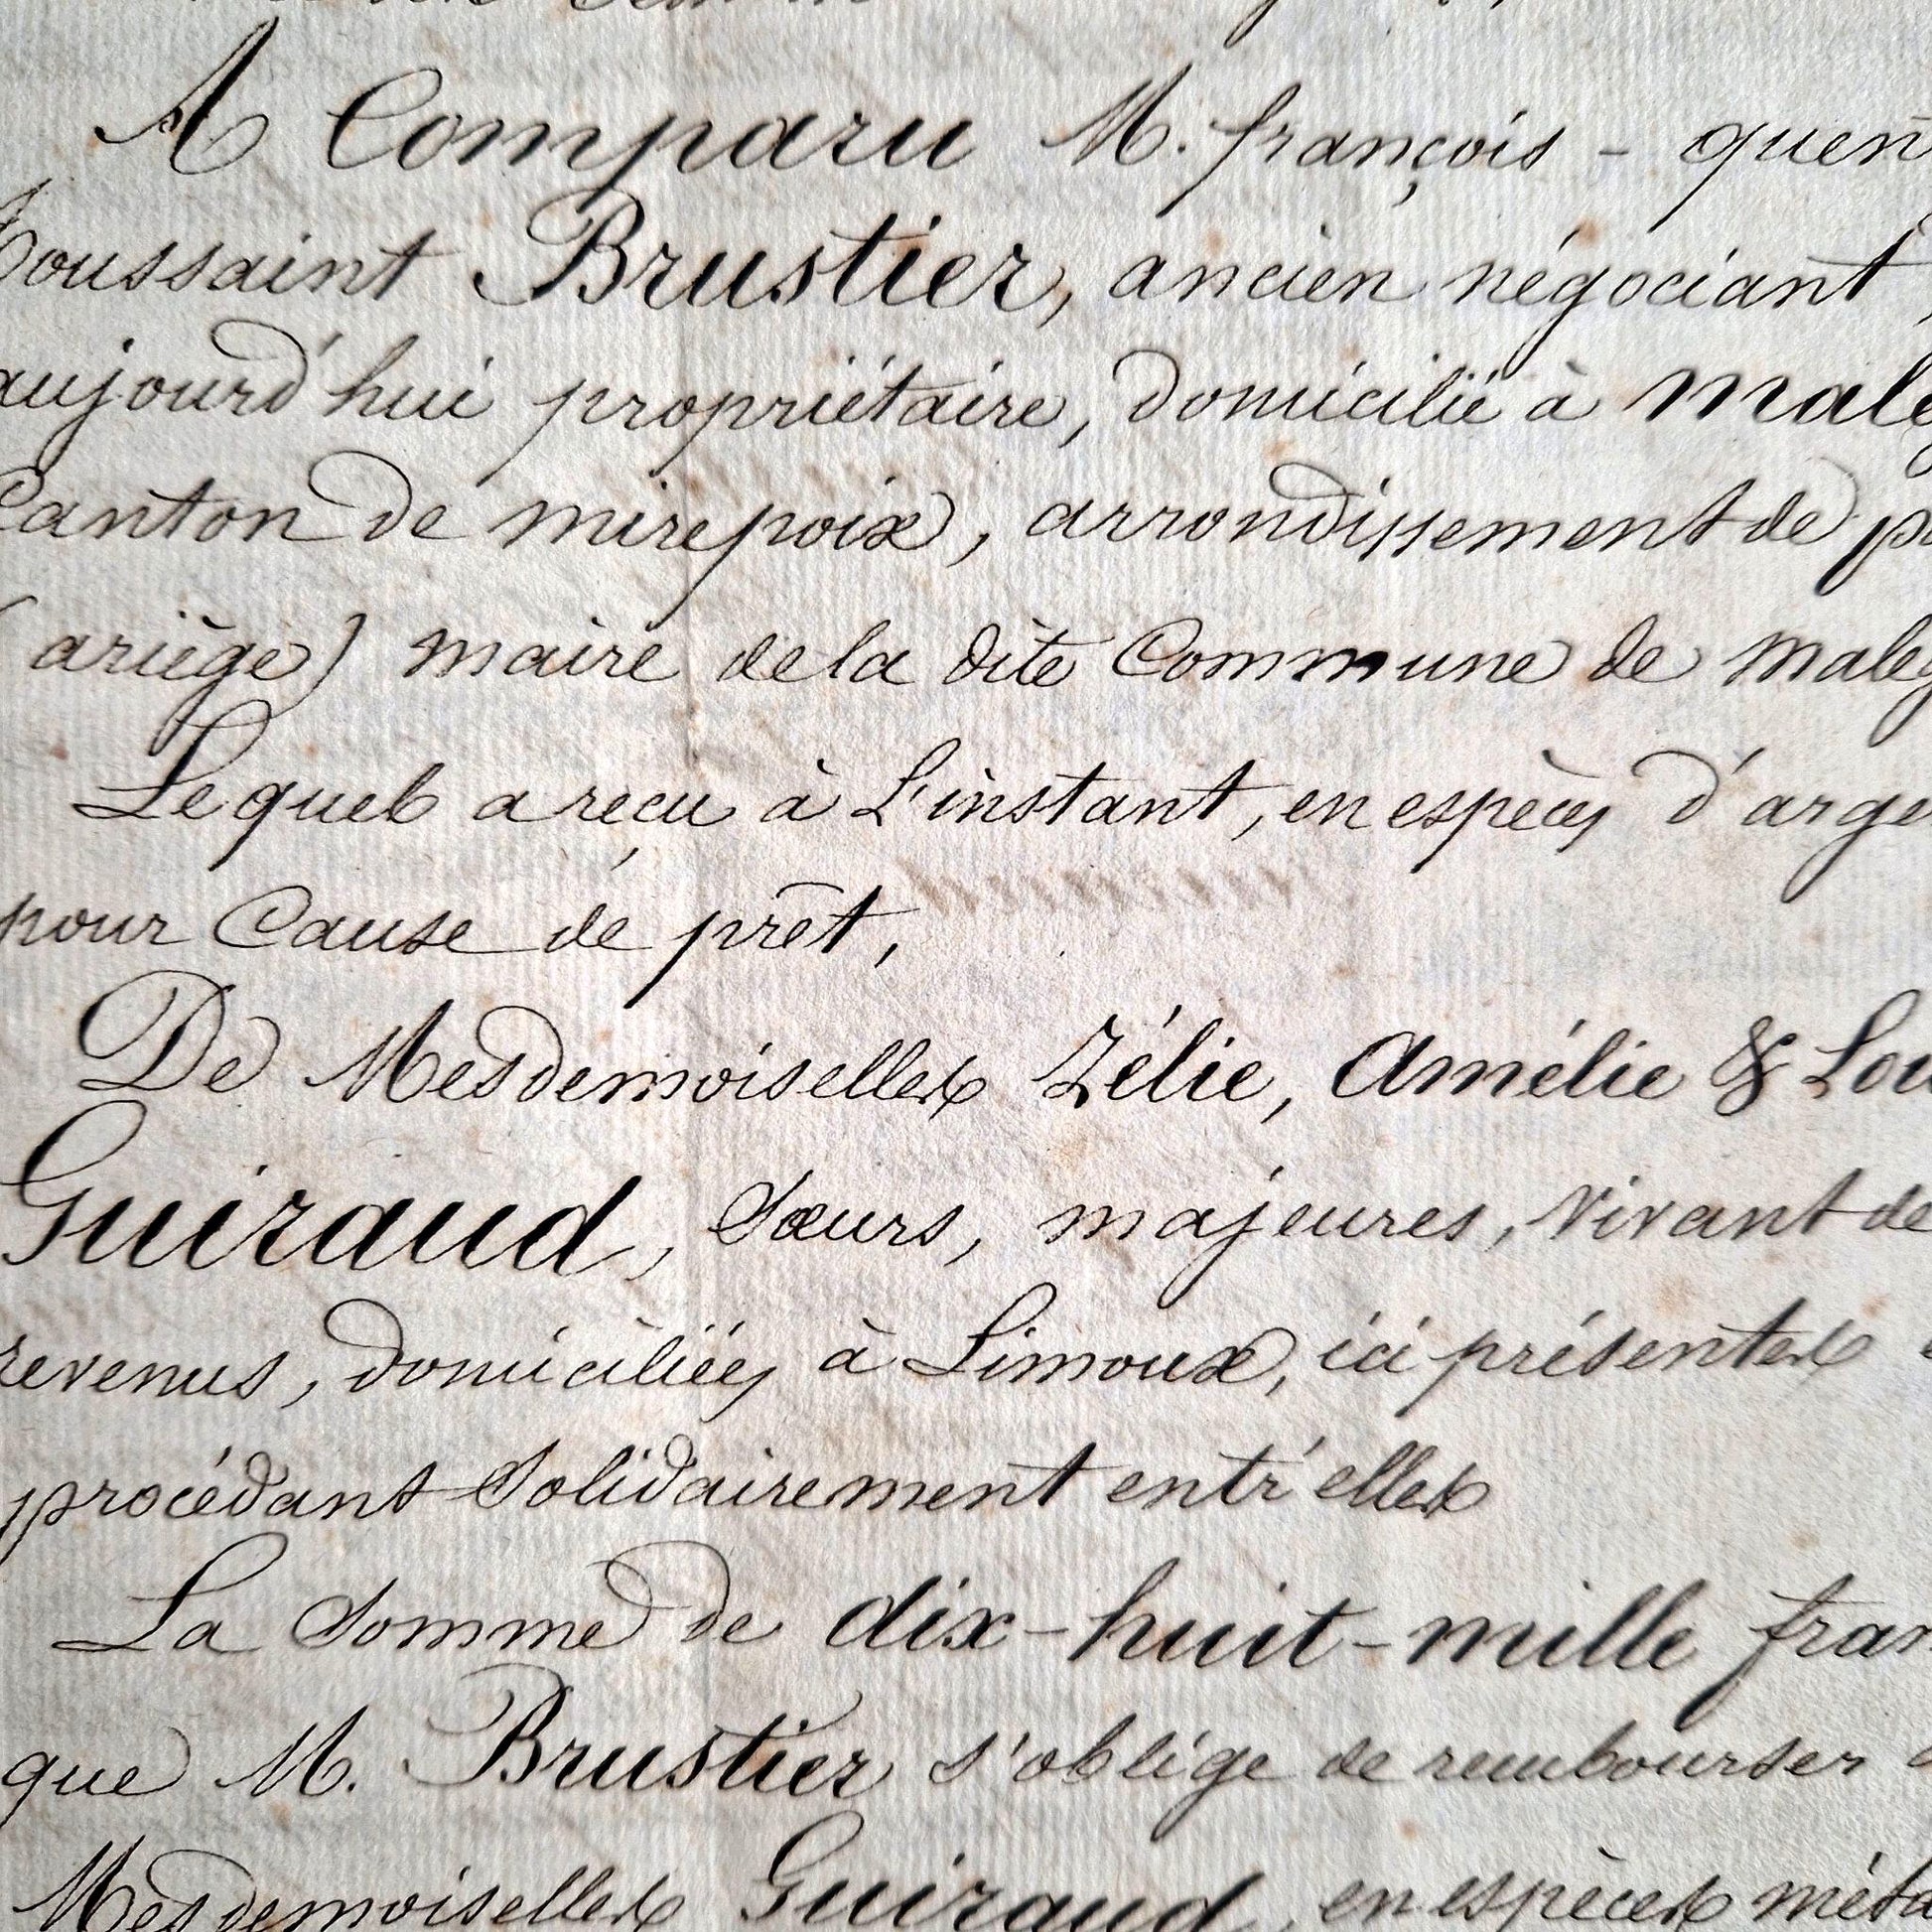 A Comparu M. françois - quen
Toussaint Brustier, ancien négociant,
aujourd'hui propriétaire, domicilié à male
Canton de mirepoix, arrondissement de p
(ariège) maire de la dite Commune de maleg
Lequel a reçu à L'instant, en espèces d'arge
pour Cause de prêt,
De Mesdemoiselles Zélie, Amélie & Lou
Guiraud, Sœurs, majeures, vivant de
revenus, domiciliées à Limoux, ici présentes
procédant Solidairement entr'elles
La Somme de dix-huit-mille fran
que M. Brustier s'oblige de rembourser
Mesdemoiselles Guiraud, en espèces méta